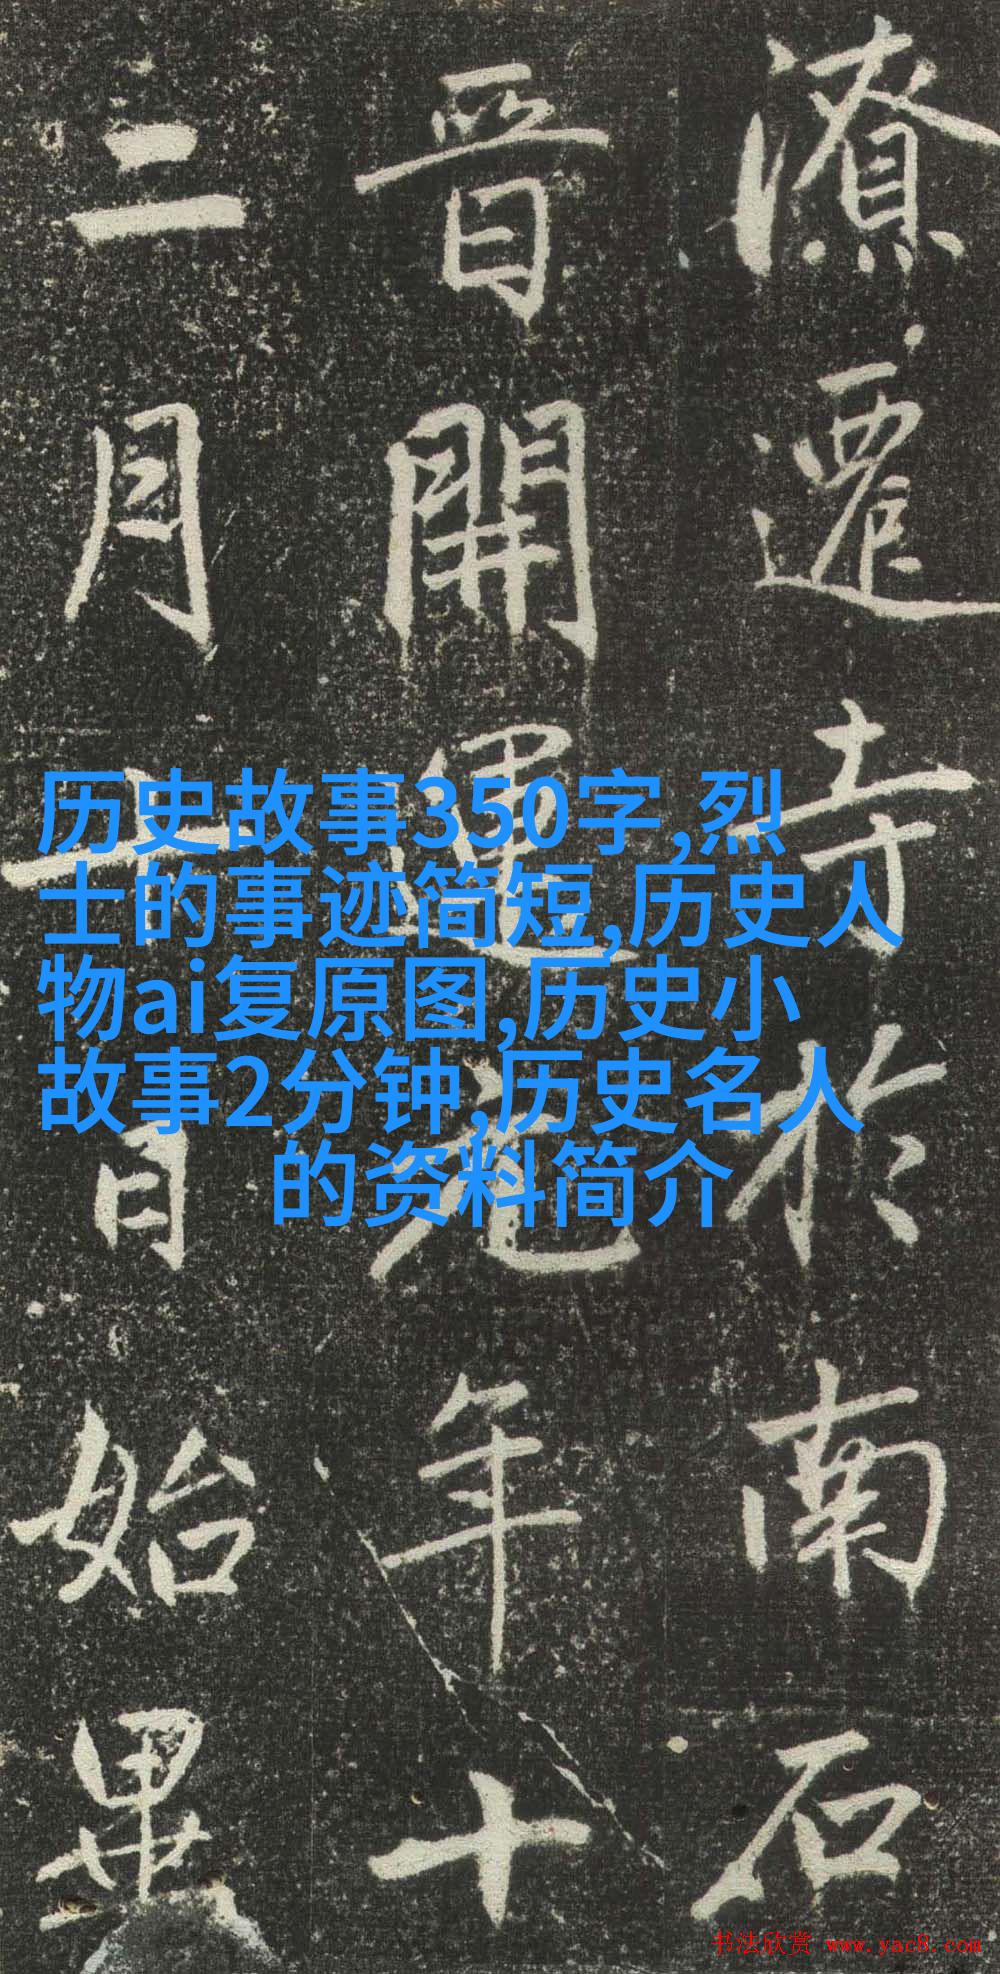 潦遷寺於南石
晉開運元年十
二月十日始畢
历史故事350字,烈
士的事迹简短,历史人
物ai复原图,历史小
故事2分钟,历史名人
的资料简介
书法欣赏 www.yac8.com